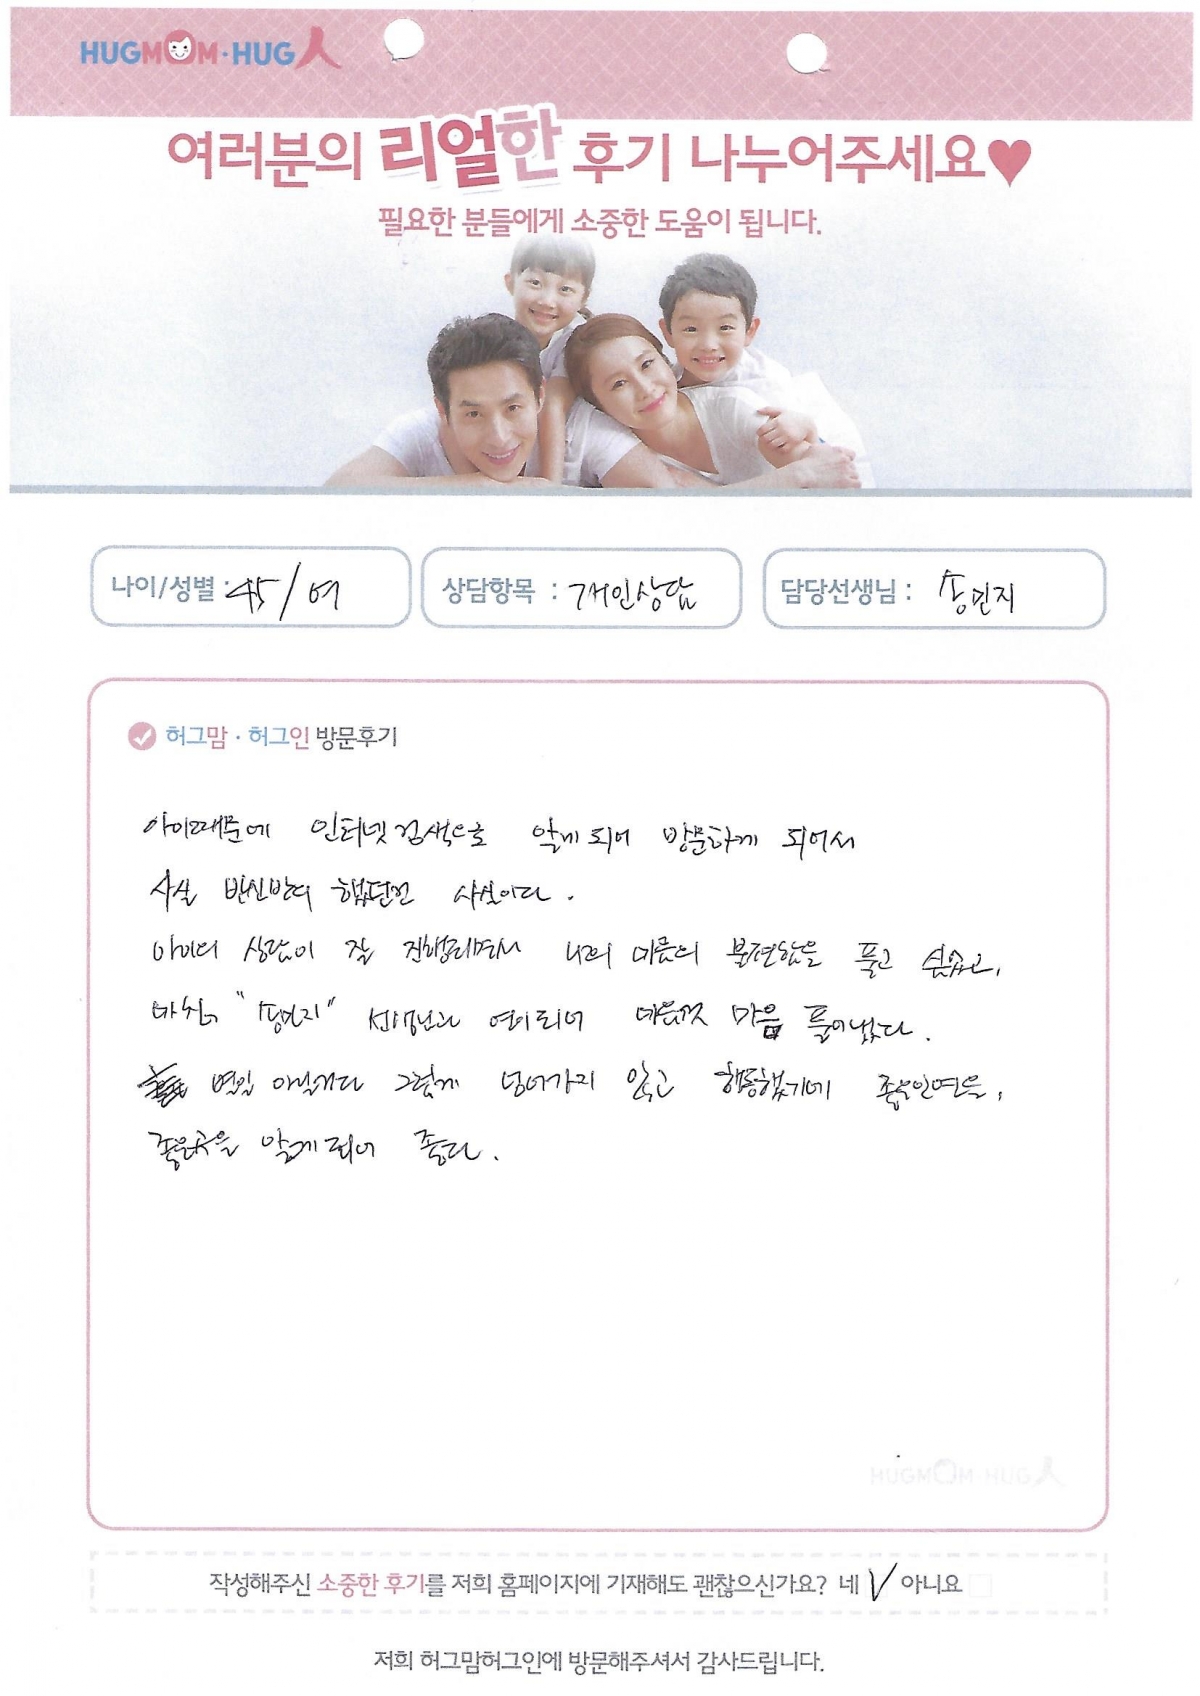 HUGMOM·HUG人
여러분의 리얼한 후기 나누어주세요♥
필요한 분들에게 소중한 도움이 됩니다.
나이/성별 : 45/여
상담항목 : 개인상담
담당선생님 : 송민지
허그맘·허그인 방문후기
아이때문에 인터넷검색으로 알게되어 방문하게 되어서
사실 반신반의 했던건 사실이다.
아이의 상담이 잘 진행되면서 나의 마음의 불편함을 풀고 싶었고,
마침 "송민지" 선생님과 연이되어 마음껏 마음 풀어냈다.
아닐거다 그렇게 넘어가지 않고 행동했기에 좋은인연을,
좋은곳을 알게되어 좋다.
HUGMOM HUG人
작성해주신 소중한 후기를 저희 홈페이지에 기재해도 괜찮으신가요? 네 V 아니요 □
저희 허그맘허그인에 방문해주셔서 감사드립니다.